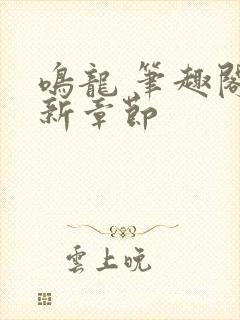 鳴龍 筆趣閣
新章節
雲上晚